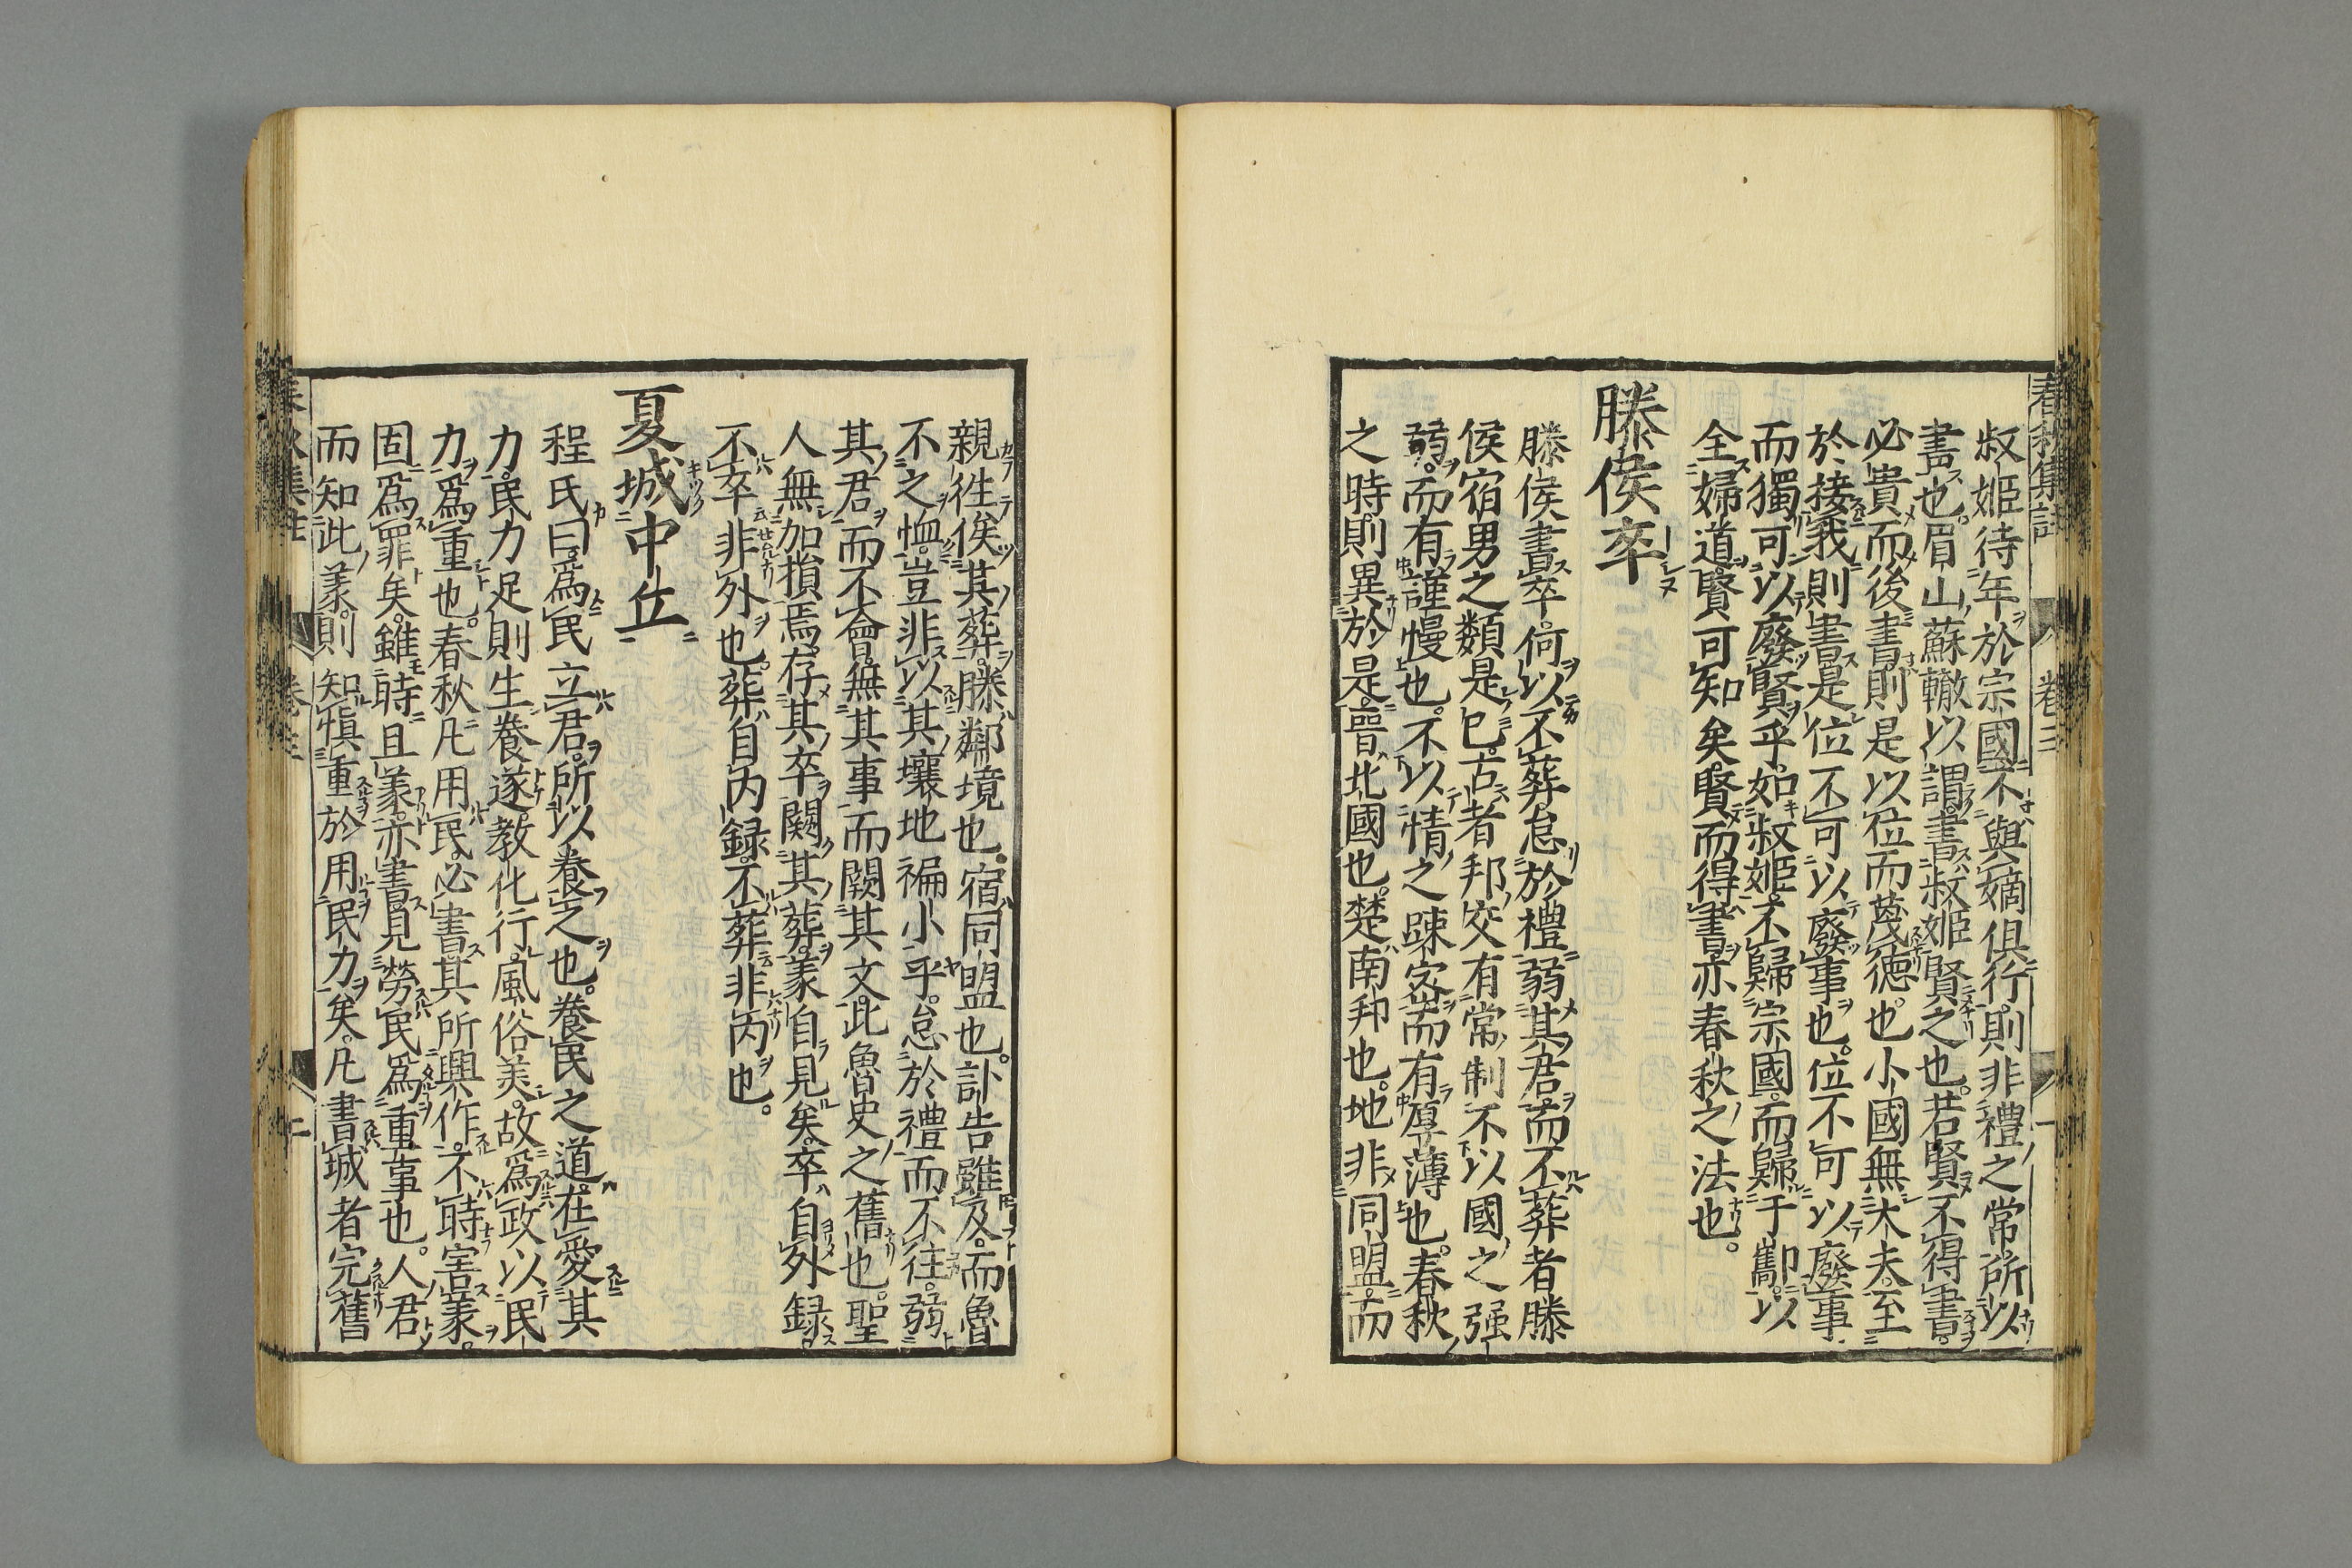 叔姬待年於宗國不與嫡俱行則非禮之常所以
書也眉山蘇轍以謂書叔姬賢之也若賢不得書
必貴而後書則是以位而蔑德也小國無大夫至
於接我則書是位不可以廢事也位不可以廢事
而獨可以廢賢乎如叔姬不歸宗國而歸于酅以
全婦道賢可知矣賢而得書亦春秋之法也
滕侯卒
滕侯書卒何以不葬怠於禮弱其君而不葬者滕
侯宿男之類是已古者邦交有常制不以國之强
弱而有謹慢也不以情之踈密而有厚薄也春秋
之時則異於是晉北國也楚南邦也地非同盟而
親徃俟其葬滕鄰境也宿同盟也訃告雖及而魯
不之恤豈非以其壤地褊小乎怠於禮而不往弱
其君而不會無其事而闕其文此魯史之舊也聖
人無加損焉存其卒闕其葬義自見矣卒自外録
不卒非外也葬自内録不葬非内也
夏城中丘
程氏曰爲民立君所以養之也養民之道在愛其
力民力足則生養遂教化行風俗美故爲政以民
力爲重也春秋凡用民必書其所興作不時害義
固爲罪矣雖時且義亦書見勞民爲重事也人君
而知此義則知愼重於用民力矣凡書城者完舊